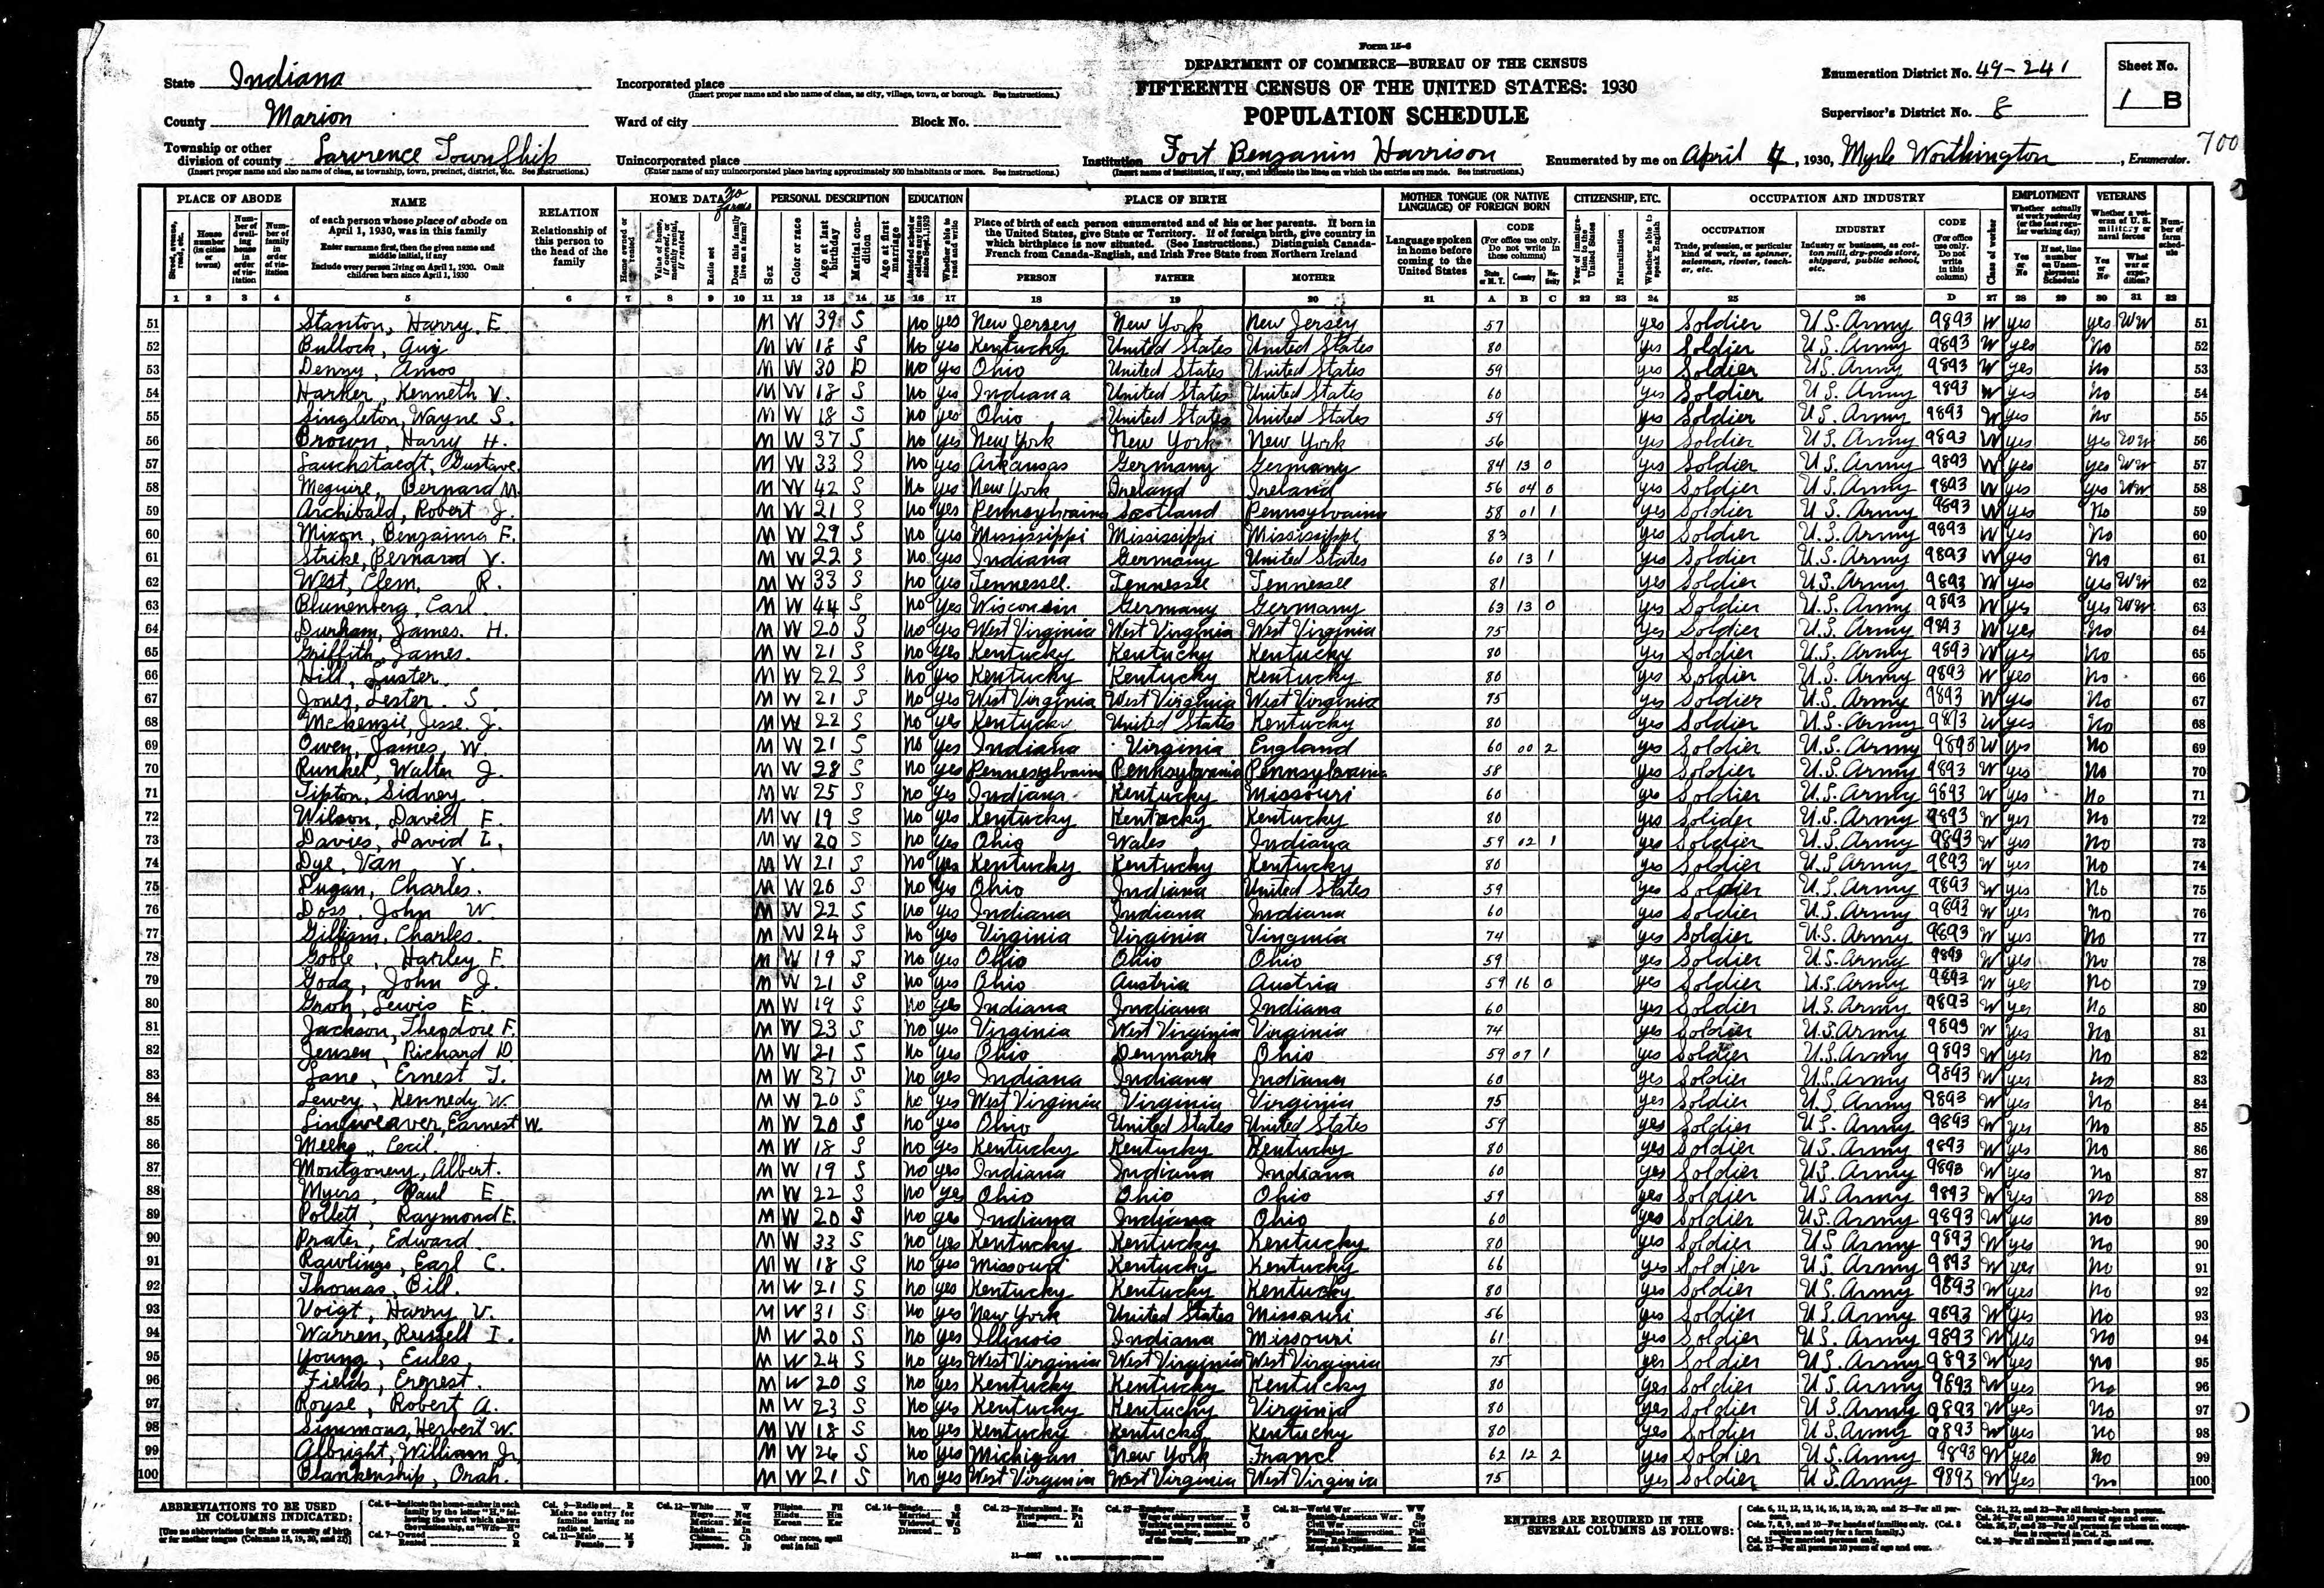 Form 15-6
DEPARTMENT OF COMMERCE—BUREAU OF THE CENSUS
FIFTEENTH CENSUS OF THE UNITED STATES: 1930
POPULATION SCHEDULE
State Indiana
County Marion
Township or other division of county Lawrence Township
(Insert proper name and also name of class, as township, town, precinct, district, etc. See instructions.)
Incorporated place
(Insert proper name and also name of class, as city, village, town, or borough. See instructions.)
Ward of city Block No.
Unincorporated place
(Enter name of any unincorporated place having approximately 500 inhabitants or more. See instructions.)
Institution Fort Benjamin Harrison
(Insert name of institution, if any, and indicate the lines on which the entries are made. See instructions.)
Enumeration District No. 49-241
Supervisor's District No. 8
Sheet No.
1 B
Enumerated by me on April 4, 1930, Myrle Worthington, Enumerator.
700
PLACE OF ABODE NAME RELATION HOME DATA PERSONAL DESCRIPTION EDUCATION PLACE OF BIRTH MOTHER TONGUE (OR NATIVE LANGUAGE) OF FOREIGN BORN CITIZENSHIP, ETC. OCCUPATION AND INDUSTRY EMPLOYMENT VETERANS
PERSON FATHER MOTHER
1 2 3 4 5 6 7 8 9 10 11 12 13 14 15 16 17 18 19 20 21 A B C 22 23 24 25 26 D 27 28 29 30 31 32
51 Stanton, Harry E. M W 39 S no yes New Jersey New York New Jersey 57 yes Soldier U.S. Army 9893 W yes yes WW 51
52 Bullock, Guy M W 18 S no yes Kentucky United States United States 80 yes Soldier U.S. Army 9893 W yes no 52
53 Denny, Amos M W 30 D no yes Ohio United States United States 59 yes Soldier U.S. Army 9893 W yes no 53
54 Harker, Kenneth V. M W 18 S no yes Indiana United States United States 60 yes Soldier U.S. Army 9893 W yes no 54
55 Singleton, Wayne S. M W 18 S no yes Ohio United States United States 59 yes Soldier U.S. Army 9893 W yes no 55
56 Brown, Harry H. M W 37 S no yes New York New York New York 56 yes Soldier U.S. Army 9893 W yes yes WW 56
57 Lauchstaedt, Gustave M W 33 S no yes Arkansas Germany Germany 84 13 0 yes Soldier U.S. Army 9893 W yes yes WW 57
58 Meguire, Bernard M. M W 42 S no yes New York Ireland Ireland 56 04 0 yes Soldier U.S. Army 9893 W yes yes WW 58
59 Archibald, Robert J. M W 21 S no yes Pennsylvaina Scotland Pennsylvaina 58 01 1 yes Soldier U.S. Army 9893 W yes no 59
60 Mixon, Benjaima F. M W 29 S no yes Mississippi Mississippi Mississippi 83 yes Soldier U.S. Army 9893 W yes no 60
61 Strike, Bernard V. M W 22 S no yes Indiana Germany United States 60 13 1 yes Soldier U.S. Army 9893 W yes no 61
62 West, Clem, R. M W 33 S no yes Tennessee Tennessee Tennessee 81 yes Soldier U.S. Army 9893 W yes yes WW 62
63 Blunenberg, Carl M W 44 S no yes Wisconsin Germany Germany 63 13 0 yes Soldier U.S. Army 9893 W yes yes WW 63
64 Durham, James. H. M W 20 S no yes West Virginia West Virginia West Virginia 75 yes Soldier U.S. Army 9893 W yes no 64
65 Griffith, James. M W 21 S no yes Kentucky Kentucky Kentucky 80 yes Soldier U.S. Army 9893 W yes no 65
66 Hill, Luster. M W 22 S no yes Kentucky Kentucky Kentucky 80 yes Soldier U.S. Army 9893 W yes no 66
67 Jones, Lester. S. M W 21 S no yes West Virginia West Virginia West Virginia 75 yes Soldier U.S. Army 9893 W yes no 67
68 McKenzie, Jesse. J. M W 22 S no yes Kentucky United States Kentucky 80 yes Soldier U.S. Army 9893 W yes no 68
69 Owen, James, W. M W 21 S no yes Indiana Virginia England 60 00 2 yes Soldier U.S. Army 9893 W yes no 69
70 Runkel, Walter J. M W 28 S no yes Pennesylvaina Pennsylvania Pennsylvaina 58 yes Soldier U.S. Army 9893 W yes no 70
71 Tipton, Sidney M W 25 S no yes Indiana Kentucky Missouri 60 yes Soldier U.S. Army 9893 W yes no 71
72 Wilson, David F. M W 19 S no yes Kentucky Kentucky Kentucky 80 yes Soldier U.S. Army 9893 W yes no 72
73 Davies, David L. M W 20 S no yes Ohio Wales Indiana 59 02 1 yes Soldier U.S. Army 9893 W yes no 73
74 Dye, Van V. M W 21 S no yes Kentucky Kentucky Kentucky 80 yes Soldier U.S. Army 9893 W yes no 74
75 Dugan, Charles. M W 20 S no yes Ohio Indiana United States 59 yes Soldier U.S. Army 9893 W yes no 75
76 Doss, John W. M W 22 S no yes Indiana Indiana Indiana 60 yes Soldier U.S. Army 9893 W yes no 76
77 Gilliam, Charles. M W 24 S no yes Virginia Virginia Virginia 74 yes Soldier U.S. Army 9893 W yes no 77
78 Goble, Harley F. M W 19 S no yes Ohio Ohio Ohio 59 yes Soldier U.S. Army 9893 W yes no 78
79 Goda, John J. M W 21 S no yes Ohio Austria Austria 59 16 0 yes Soldier U.S. Army 9893 W yes no 79
80 Groh, Lewis E. M W 19 S no yes Indiana Indiana Indiana 60 yes Soldier U.S. Army 9893 W yes no 80
81 Jackson, Theodore F. M W 23 S no yes Virginia West Virginia Virginia 74 yes Soldier U.S. Army 9893 W yes no 81
82 Jensen, Richard D. M W 21 S no yes Ohio Denmark Ohio 59 07 1 yes Soldier U.S. Army 9893 W yes no 82
83 Lane, Ernest T. M W 37 S no yes Indiana Indiana Indiana 60 yes Soldier U.S. Army 9893 W yes no 83
84 Lewey, Kennedy W. M W 20 S no yes West Virginia Virginia Virginia 75 yes Soldier U.S. Army 9893 W yes no 84
85 Lineweaver, Earnest W. M W 20 S no yes Ohio United States United States 59 yes Soldier U.S. Army 9893 W yes no 85
86 Meeks, Cecil. M W 18 S no yes Kentucky Kentucky Kentucky 80 yes Soldier U.S. Army 9893 W yes no 86
87 Montgomery, Albert. M W 19 S no yes Indiana Indiana Indiana 60 yes Soldier U.S. Army 9893 W yes no 87
88 Myers, Paul E. M W 22 S no yes Ohio Ohio Ohio 59 yes Soldier U.S. Army 9893 W yes no 88
89 Pollett, Raymond E. M W 20 S no yes Indiana Indiana Ohio 60 yes Soldier U.S. Army 9893 W yes no 89
90 Prater, Edward. M W 33 S no yes Kentucky Kentucky Kentucky 80 yes Soldier U.S. Army 9893 W yes no 90
91 Rawlings, Earl C. M W 18 S no yes Missouri Kentucky Kentucky 66 yes Soldier U.S. Army 9893 W yes no 91
92 Thomas, Bill. M W 21 S no yes Kentucky Kentucky Kentucky 80 yes Soldier U.S. Army 9893 W yes no 92
93 Voigt, Harry V. M W 31 S no yes New York United States Missouri 56 yes Soldier U.S. Army 9893 W yes no 93
94 Warren, Russell I. M W 20 S no yes Illinois Indiana Missouri 61 yes Soldier U.S. Army 9893 W yes no 94
95 Young, Eules, M W 24 S no yes West Virginia West Virginia West Virginia 75 yes Soldier U.S. Army 9893 W yes no 95
96 Fields, Ernest. M W 20 S no yes Kentucky Kentucky Kentucky 80 yes Soldier U.S. Army 9893 W yes no 96
97 Royse, Robert A. M W 23 S no yes Kentucky Kentucky Virginia 80 yes Soldier U.S. Army 9893 W yes no 97
98 Simmons, Herbert W. M W 18 S no yes Kentucky Kentucky Kentucky 80 yes Soldier U.S. Army 9893 W yes no 98
99 Albright, William Jr. M W 26 S no yes Michigan New York France 62 12 2 yes Soldier U.S. Army 9893 W yes no 99
100 Blankenship, Orah. M W 21 S no yes West Virginia West Virginia West Virginia 75 yes Soldier U.S. Army 9893 W yes no 100
ABBREVIATIONS TO BE USED IN COLUMNS INDICATED:
ENTRIES ARE REQUIRED IN THE SEVERAL COLUMNS AS FOLLOWS: